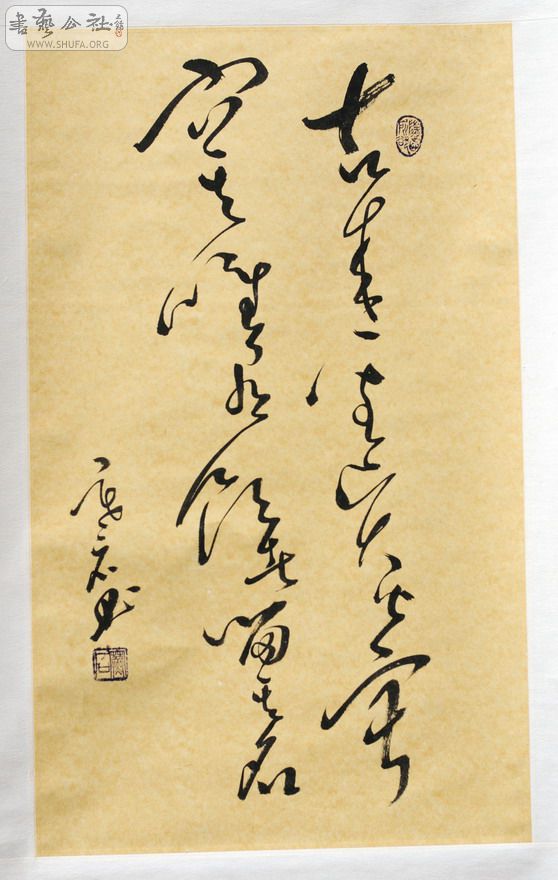 書藝公社
WWW.SHUFA.ORG
古來聖賢皆寂
寞唯有飲者留其名